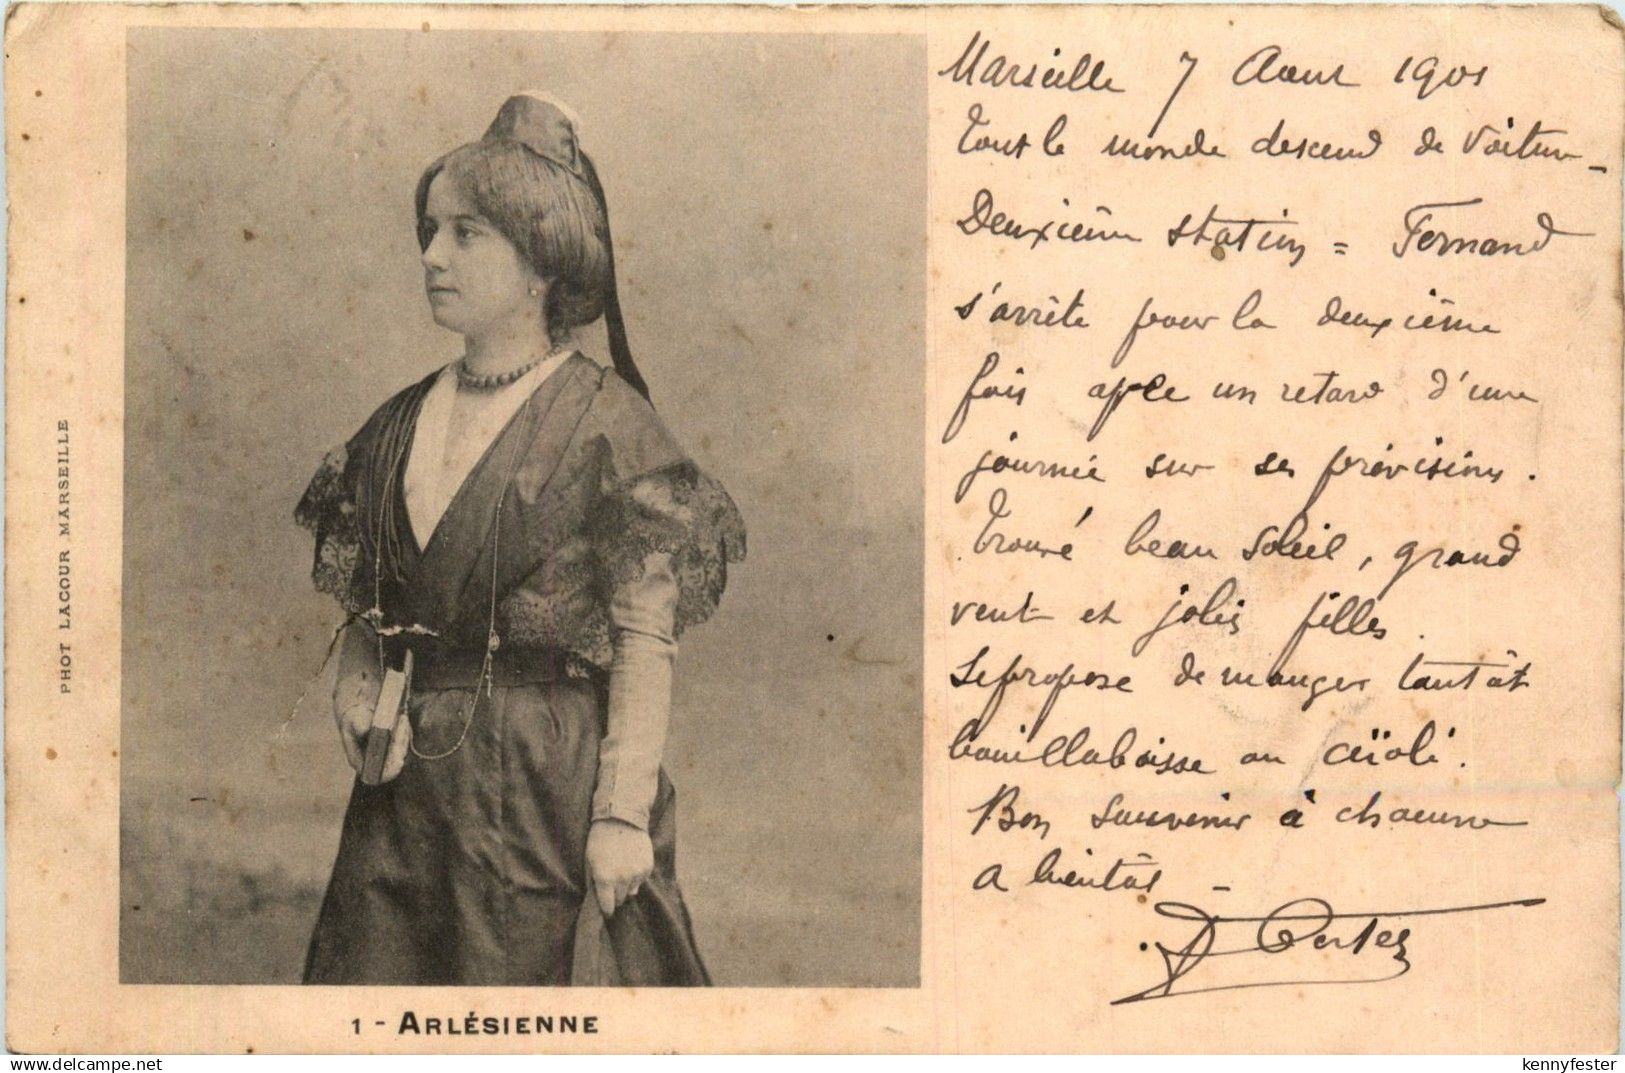 PHOT LACOUR MARSEILLE
1 - ARLÉSIENNE
Marseille 7 Aout 1901
Tout le monde descend de Voiture -
Deuxième station = Fernand
s'arrête pour la deuxième
fois un retard d'une
journée sur ses prévisions.
Trouvé beau soleil, grand
vent et jolies filles.
Se propose de manger tantôt
bouillabaisse ou aïoli.
Bon souvenir à chacune
A bientôt -
https://www.delcampe.net
kennyfester